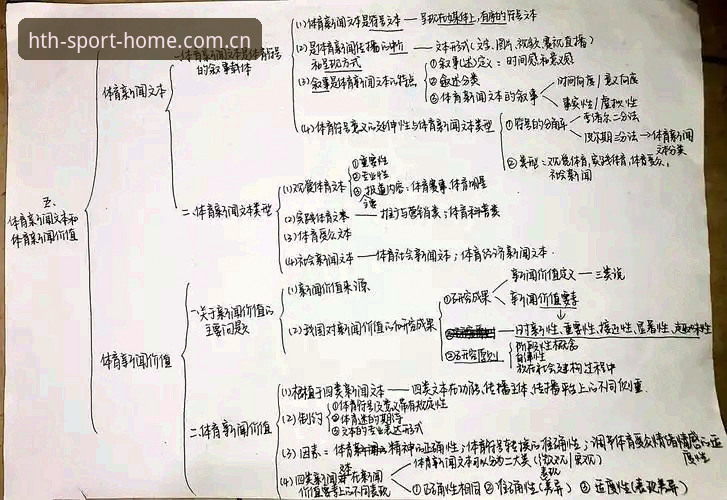 hth-sport-home.com.cn
五、
体育新闻文本和
体育新闻价值
体育新闻文本
一、体育新闻文本是体育符号
的叙事载体
(1)体育新闻文本是符号文本——呈现在媒体上,有序的符号文本
(2)是体育新闻传播的中介
和呈现方式
文本形式(文字、图片、视频、赛现直播)
(3)叙事是体育新闻文本的特点
①叙事(述)定义:时间感和意义感
②叙述分类
③体育新闻文本的叙事
时间向度/意义向度
事实性/虚拟性
(4)体育符号意义的延伸性与体育新闻文本类型
①符号的分角
索绪尔二分法
皮尔斯三分法→体育新闻
文本分类
②类形:观赏体育,实践体育,体育受众,
社会新闻
二、体育新闻文本类型
(1)观赏体育文本
①重要性
②专业性
③报道内容:体育赛事,体育明星
(2)实践体育文本——推广与营销类;体育科普类
(3)体育受众文本
(4)社会新闻文本——体育社会新闻文本;体育经济新闻文本
体育新闻价值
一、关于新闻价值的
主要问题
(1)新闻价值来源
(2)我国对新闻价值的研究成果
①研究成果
新闻价值定义——三类说
新闻价值要素
时新性、重要性、接近性、显著性、趣味性
③研究原则
自律性
放在社会建构过程中
二、体育新闻价值
(1)根植于四类新闻文本——四类文本在功能,传播主体,传播平台上的不同侧重
(2)制约
①体育符号
②体育迷的期待
③文本的专业表达形式
(3)因素:体育精神的正确性;体育符号转换的准确性;调节体育受众情绪情感的适
度性
(4)四类新闻文本在新闻
价值要素上的不同表现
体育新闻文本可以分为二大类
①正确性相同 ②准确性(差异) ③适度性(表现差异)